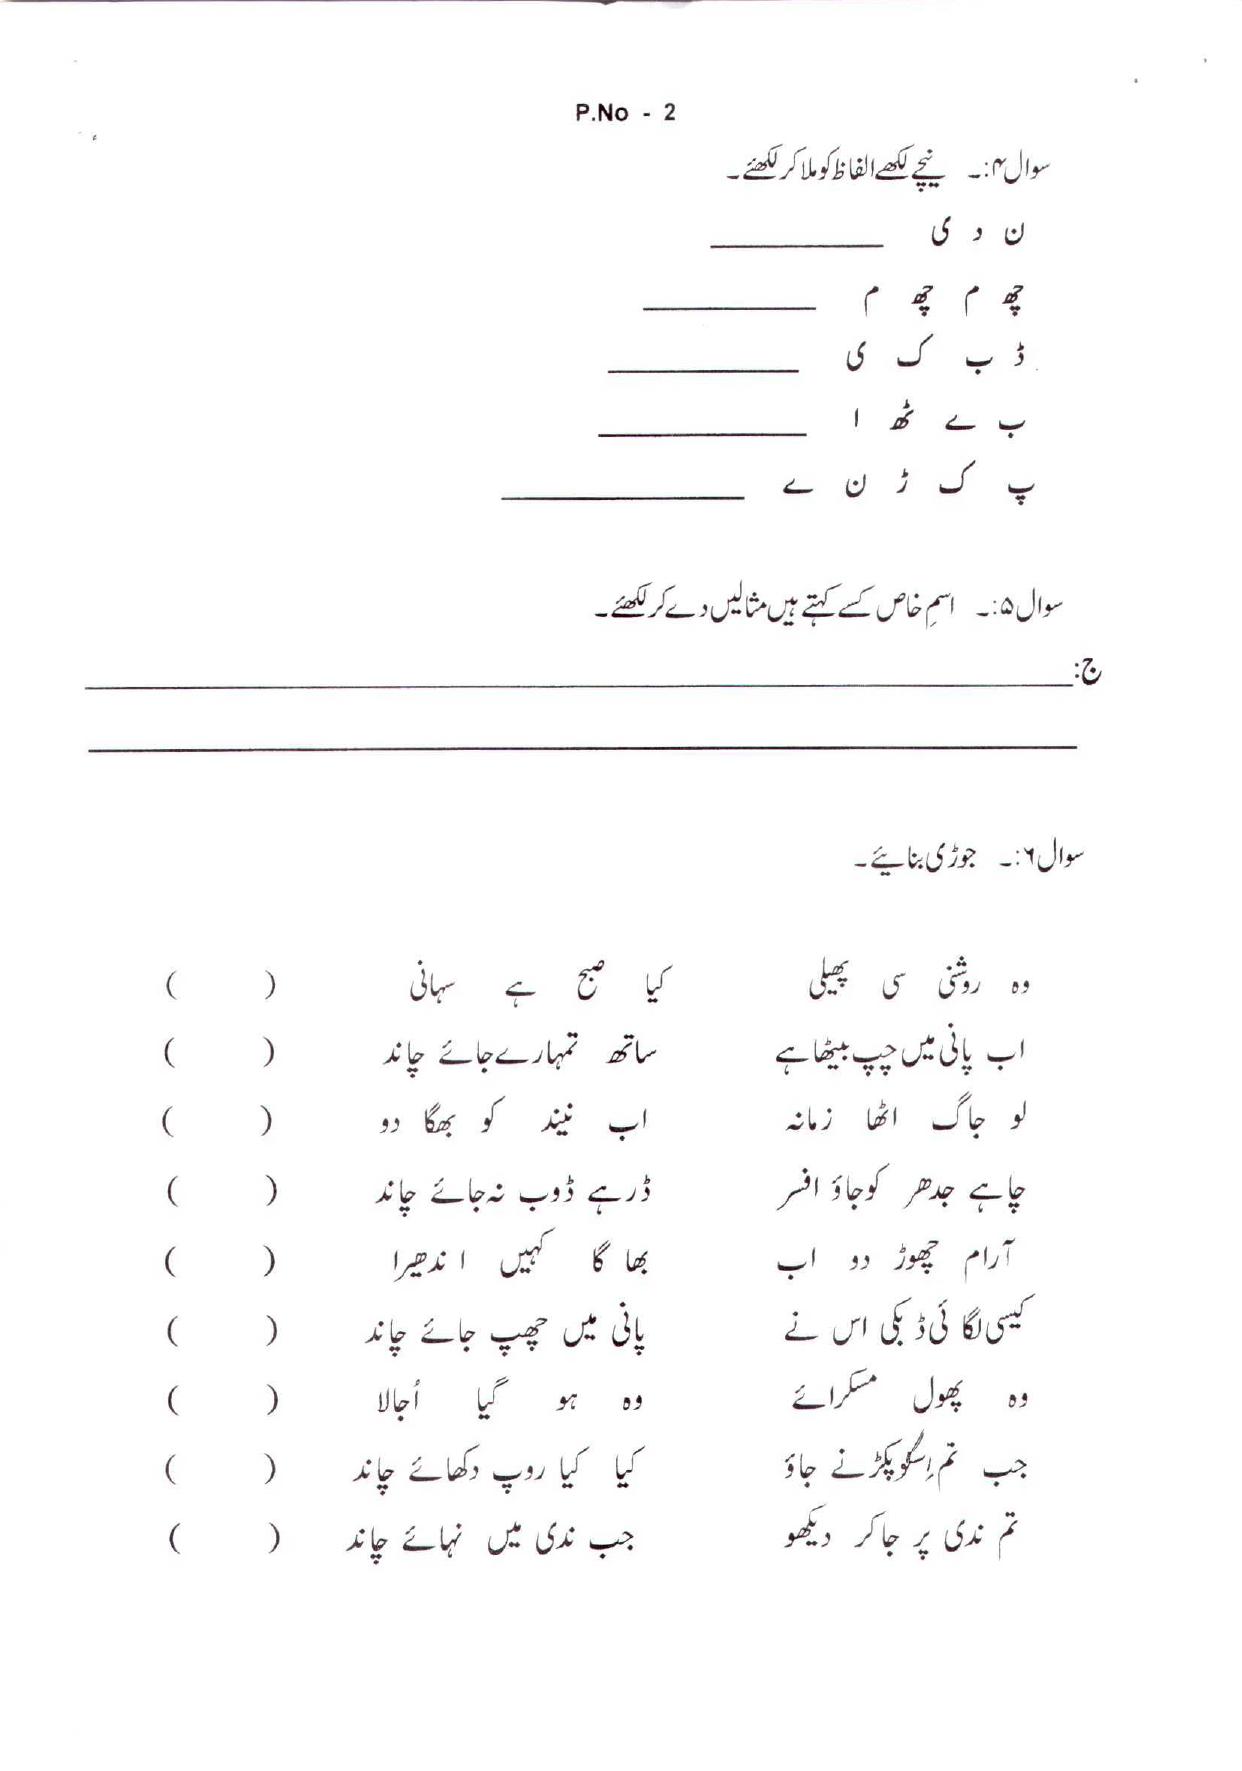 P.No - 2
سوال ۴:۔ نیچے لکھے الفاظ کو ملا کر لکھئے۔
ن د ی ____________
چھ م چھ م ____________
ڈ ب ک ی ____________
ب ے ٹھ ا ____________
پ ک ڑ ن ے ____________
سوال ۵:۔ اسمِ خاص کسے کہتے ہیں مثالیں دے کر لکھئے۔
ج: ____________
____________
سوال ۶:۔ جوڑی بنایئے۔
وہ روشنی سی پھیلی کیا صبح ہے سہانی ( )
اب پانی میں چپ بیٹھا ہے ساتھ تمہارے جائے چاند ( )
لو جاگ اٹھا زمانہ اب نیند کو بھگا دو ( )
چاہے جدھر کو جاؤ افسر ڈر ہے ڈوب نہ جائے چاند ( )
آرام چھوڑ دو اب بھا گا کہیں ا ندھیرا ( )
کیسی لگا ئی ڈ بکی اس نے پانی میں چھپ جائے چاند ( )
وہ پھول مسکرائے وہ ہو گیا اُجالا ( )
جب تم اِسکو پکڑنے جاؤ کیا کیا روپ دکھائے چاند ( )
تم ندی پر جا کر دیکھو جب ندی میں نہائے چاند ( )